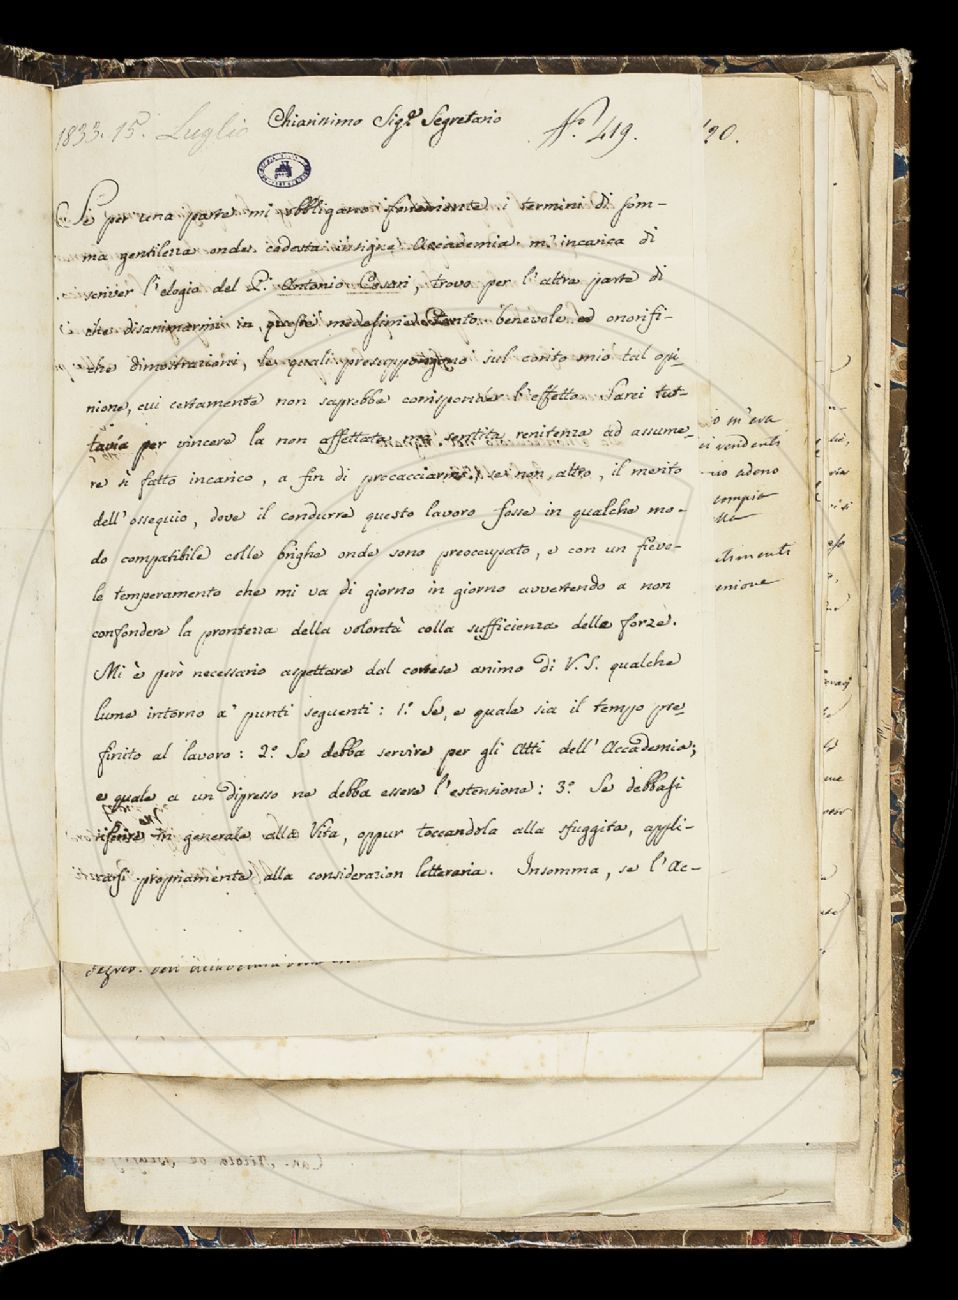 1833. 15. Luglio
Chiarissimo Sigr. Segretario
No. 419.
190.
Se per una parte mi obbligano fortemente i termini di som-
ma gentilezza onde codesta insigne Accademia m'incarica di
scriver l'elogio del P. Antonio Cesari, trovo per l'altra parte di
che disanimarmi in queste medesime tanto benevole ed onorifi-
che dimostrazioni, le quali presuppongono sul conto mio tal opi-
nione, cui certamente non saprebbe corrisponder l'effetto. Sarei tut-
tavia per vincere la non affettata, ma sentita renitenza ad assume-
re sì fatto incarico, a fin di procacciarmi, se non altro, il merito
dell'ossequio, dove il condurre questo lavoro fosse in qualche mo-
do compatibile colle brighe onde sono preoccupato, e con un fievo-
le temperamento che mi va di giorno in giorno avvertendo a non
confondere la prontezza della volontà colla sufficienza delle forze.
Mi è però necessario aspettare dal cortese animo di V. S. qualche
lume intorno a' punti seguenti: 1.o Se, e quale sia il tempo pre-
finito al lavoro: 2.o Se debba servire per gli Atti dell'Accademia;
e quale a un dipresso ne debba essere l'estensione: 3.o Se debbasi
riferire in generale alla Vita, oppur toccandola alla sfuggita, appli-
carsi propriamente alla considerazion letteraria. Insomma, se l'Ac-
io m'era
venderti
adeno
compia